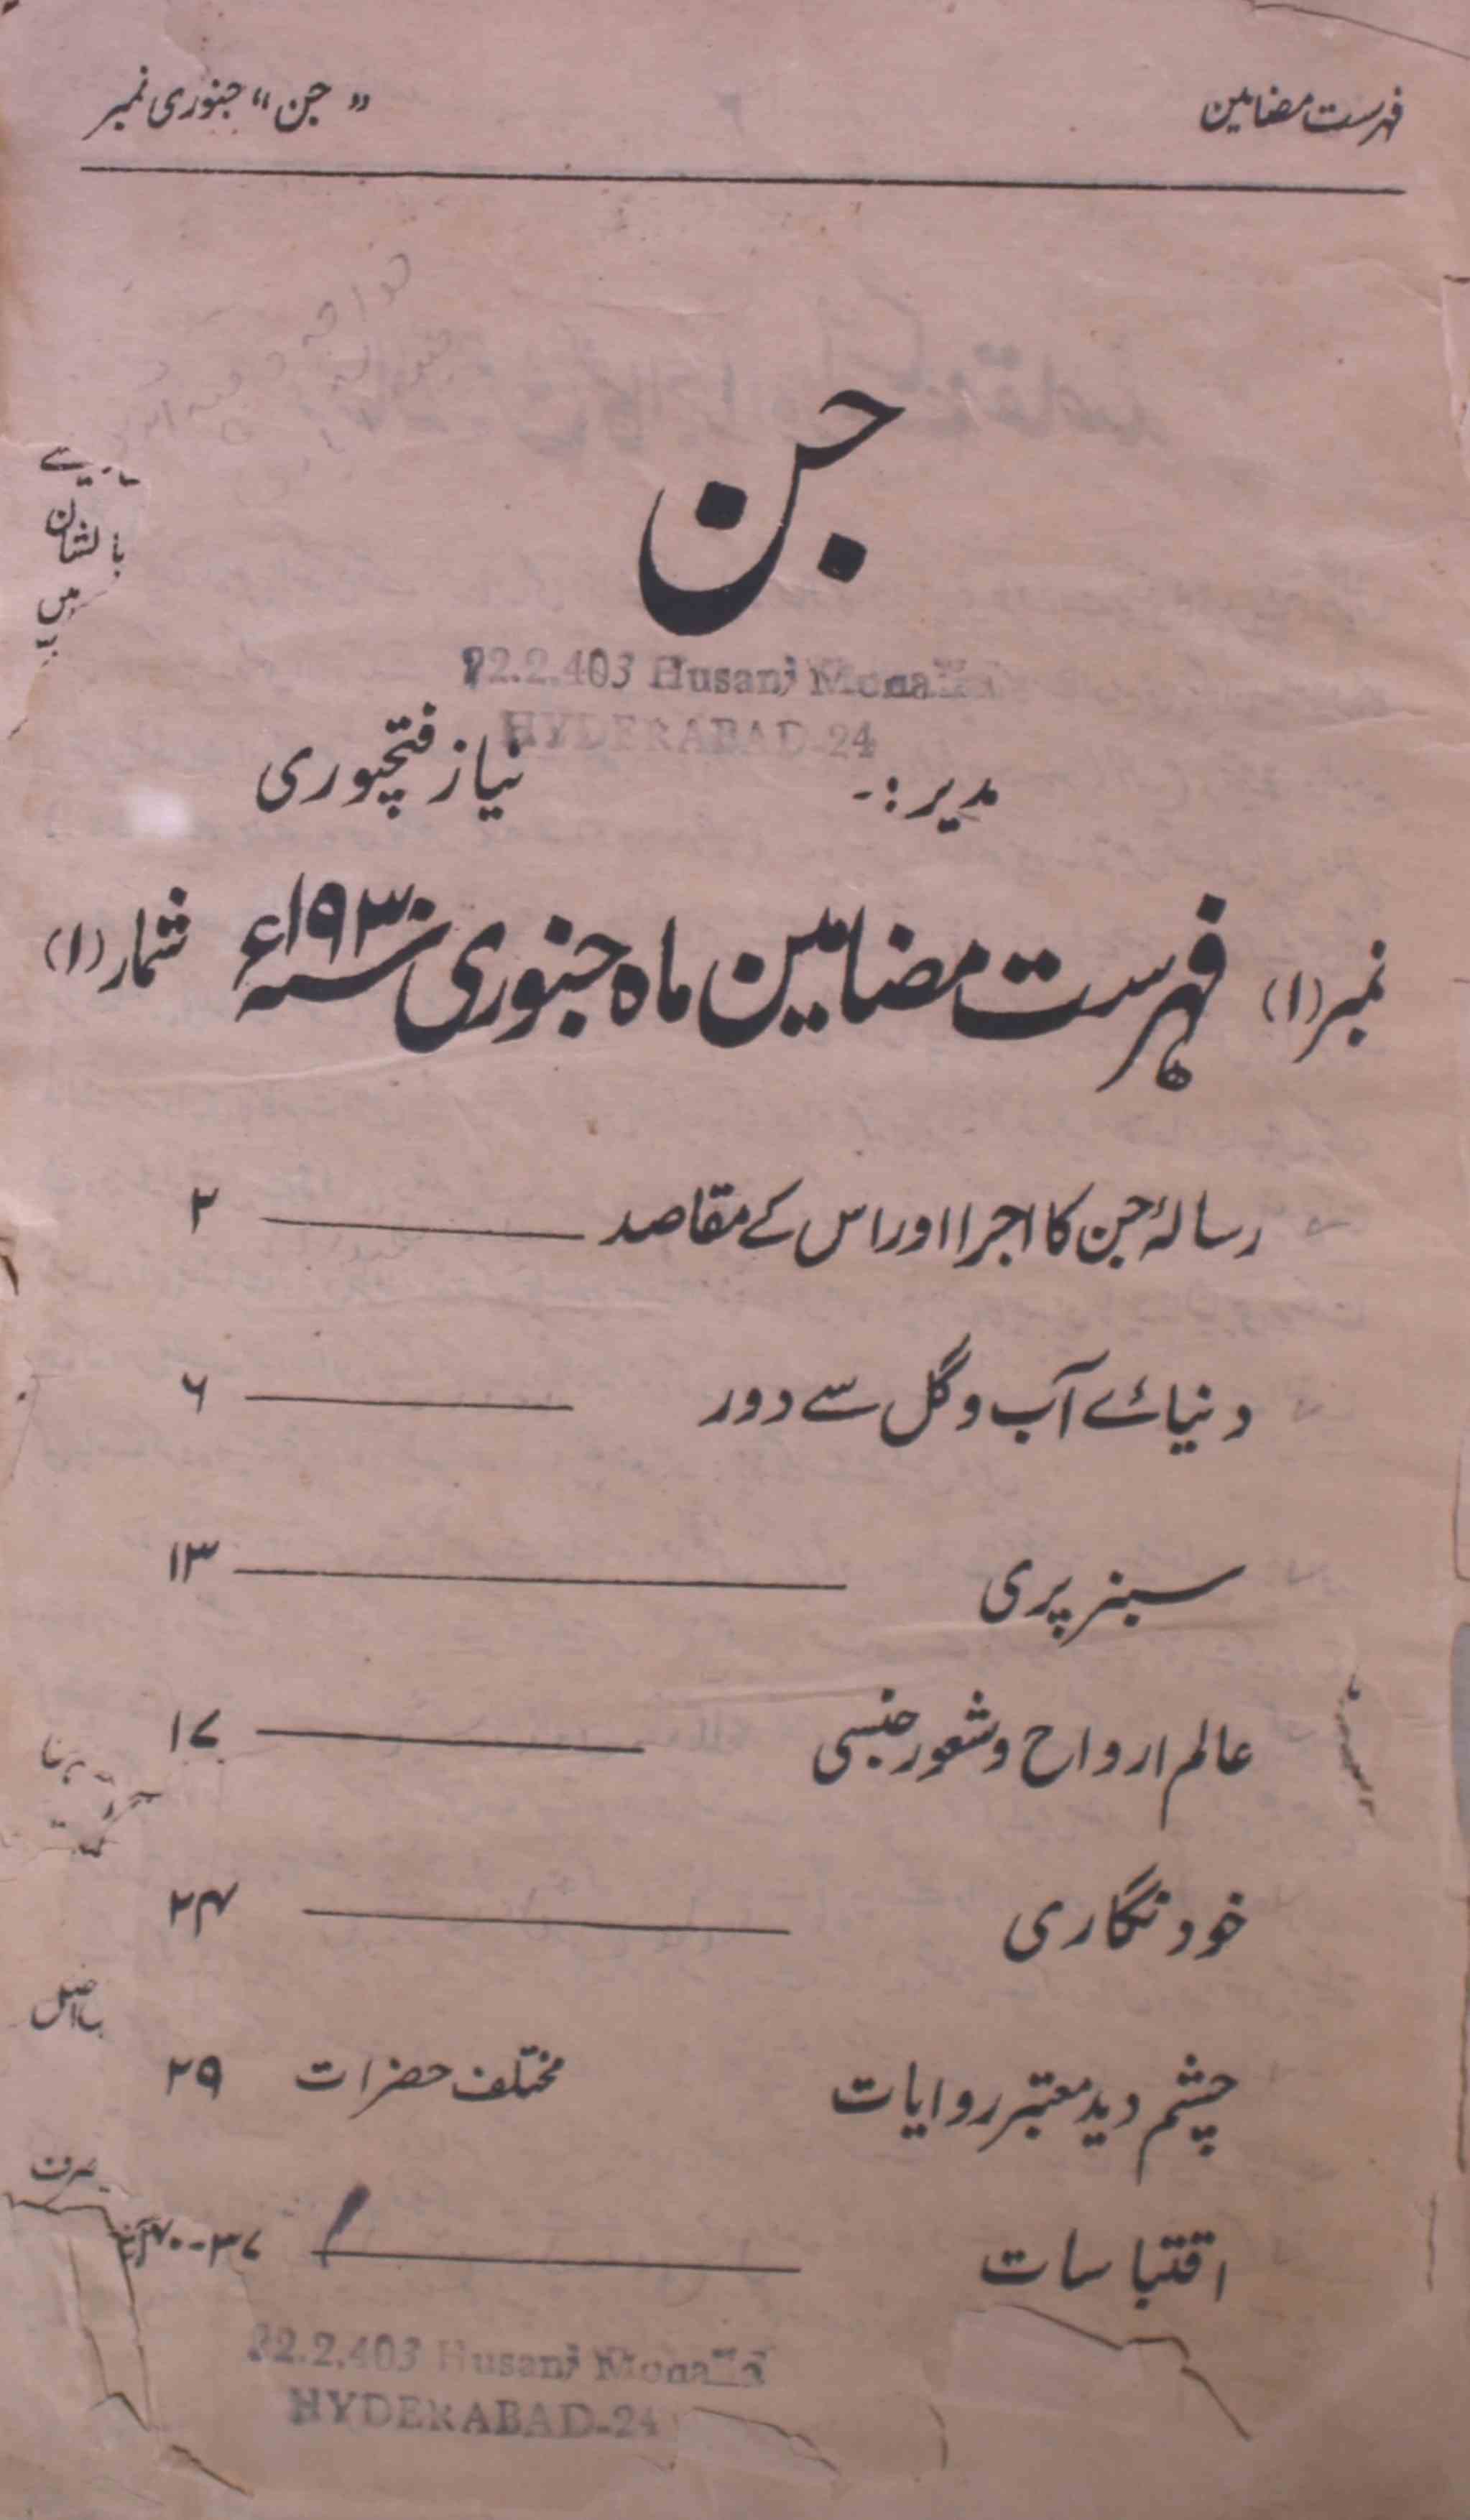 فہرست مضامین "جن" جنوری نمبر
جن
22.2.403 Husani
HYDERABAD-24
مدیر:- نیاز فتحپوری
نمبر (۱) فہرست مضامین ماہ جنوری سنہ ۱۹۳۰ء شمار (۱)
رسالۂ جن کا اجرا اور اس کے مقاصد ۲
دنیائے آب و گل سے دور ۶
سبز پری ۱۳
عالم ارواح و شعور جنسی ۱۷
خود نگاری ۲۴
چشم دید معتبر روایات مختلف حضرات ۲۹
اقتباسات ۳۷-۴۰
22.2.403 Husani
HYDERABAD-24